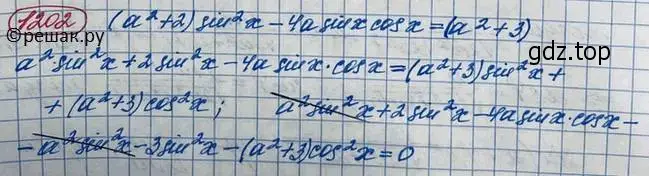 1202 (a²+2) sin²x - 4a sinx cosx = (a²+3)
©reшак.ру
gdz.top
a² sin²x + 2 sin²x - 4a sinx·cosx = (a²+3) sin²x +
+ (a²+3) cos²x ; a² sin²x + 2 sin²x - 4a sinx·cosx -
- a² sin²x - 3 sin²x - (a²+3) cos²x = 0